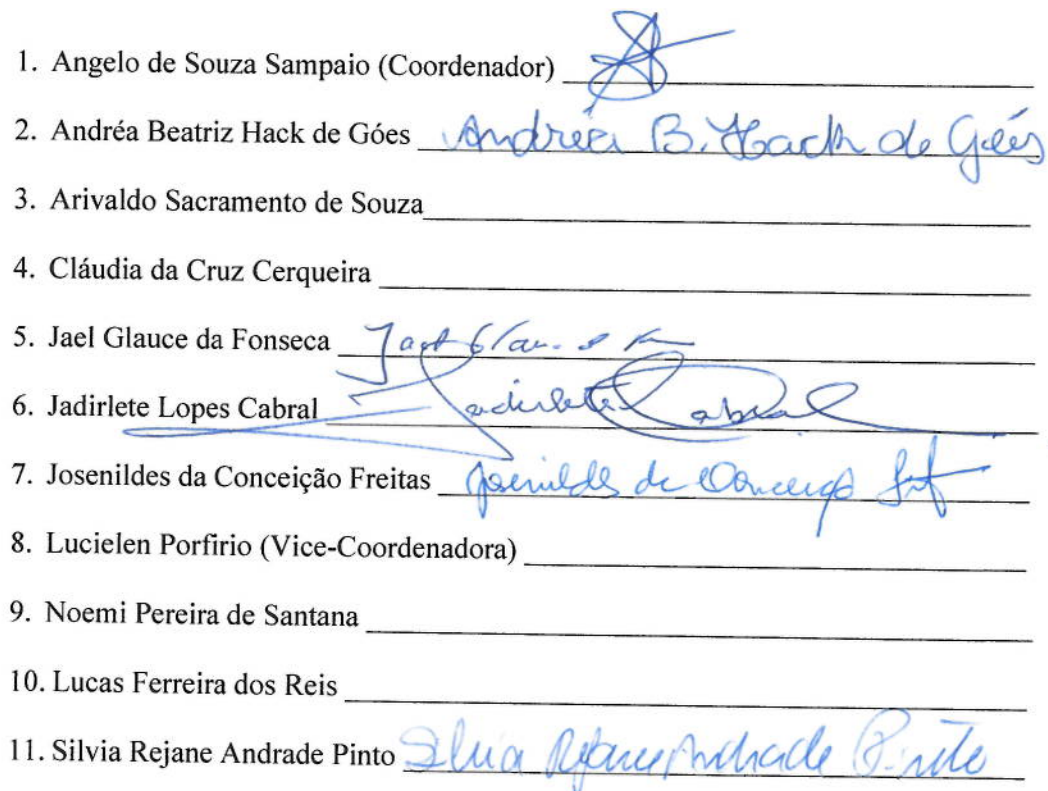 1. Angelo de Souza Sampaio (Coordenador)
2. Andréa Beatriz Hack de Góes Andréa B. Hack de Góes
3. Arivaldo Sacramento de Souza
4. Cláudia da Cruz Cerqueira
5. Jael Glauce da Fonseca
6. Jadirlete Lopes Cabral Jadirlete Cabral
7. Josenildes da Conceição Freitas Josenildes da
8. Lucielen Porfirio (Vice-Coordenadora)
9. Noemi Pereira de Santana
10. Lucas Ferreira dos Reis
11. Silvia Rejane Andrade Pinto Silvia Rejane Andrade Pinto